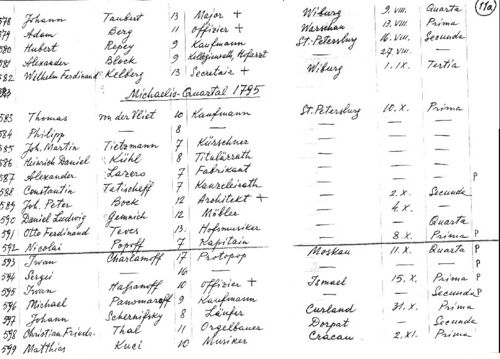 578 Johann Taubert 13 Major + Wiburg 9. VIII. Quarta (11a)
579 Adam Berg 11 Offizier + Warschau 13. VIII. Prima
580 Hubert Repey 9 Kaufmann St. Petersburg 16. VIII. Secunda
581 Alexander Block 9 Kollegienrath, Hofarzt — 27. VIII. —
582 Wilhelm Ferdinand Kelberg 13 Secretair + Wiburg 1. IX. Tertia
Michaelis-Quartal 1795
583 Thomas van der Vliet 10 Kaufmann St. Petersburg 10. X. Prima
584 Philipp — 8 — — — —
585 Joh. Martin Tietzmann 7 Kürschner — — —
586 Heinrich Daniel Kühl 8 Titulärrath — — —
587 Alexander Lazers 7 Fabrikant — — — P
588 Constantin Tatischeff 7 Kanzleirath — — —
589 Joh. Peter Bock 12 Architekt + — 2. X. Secunda
590 Daniel Ludwig Gemnich 12 Möbler — 4. X. —
591 Otto Ferdinand Teves 13 Hofsmusiker — — Quarta P
592 Nicolai Popoff 7 Kapitain — 8. X. Prima P
593 Iwan Charlamoff 17 Protopop Moskau 11. X. Quarta P
594 Sergei — 16 — — — — P
595 Iwan Hassanoff 10 Offizier + Ismael 15. X. Prima P
596 Michael Panomaroff 9 Kaufmann — — Secunda P
597 Johann Schernifsky 8 Läufer Curland 31. X. Prima
598 Christian Frieds. Thal 11 Orgelbauer Dorpat — Secunda
599 Matthias Kuci 10 Musiker Cracau 2. XI. Prima